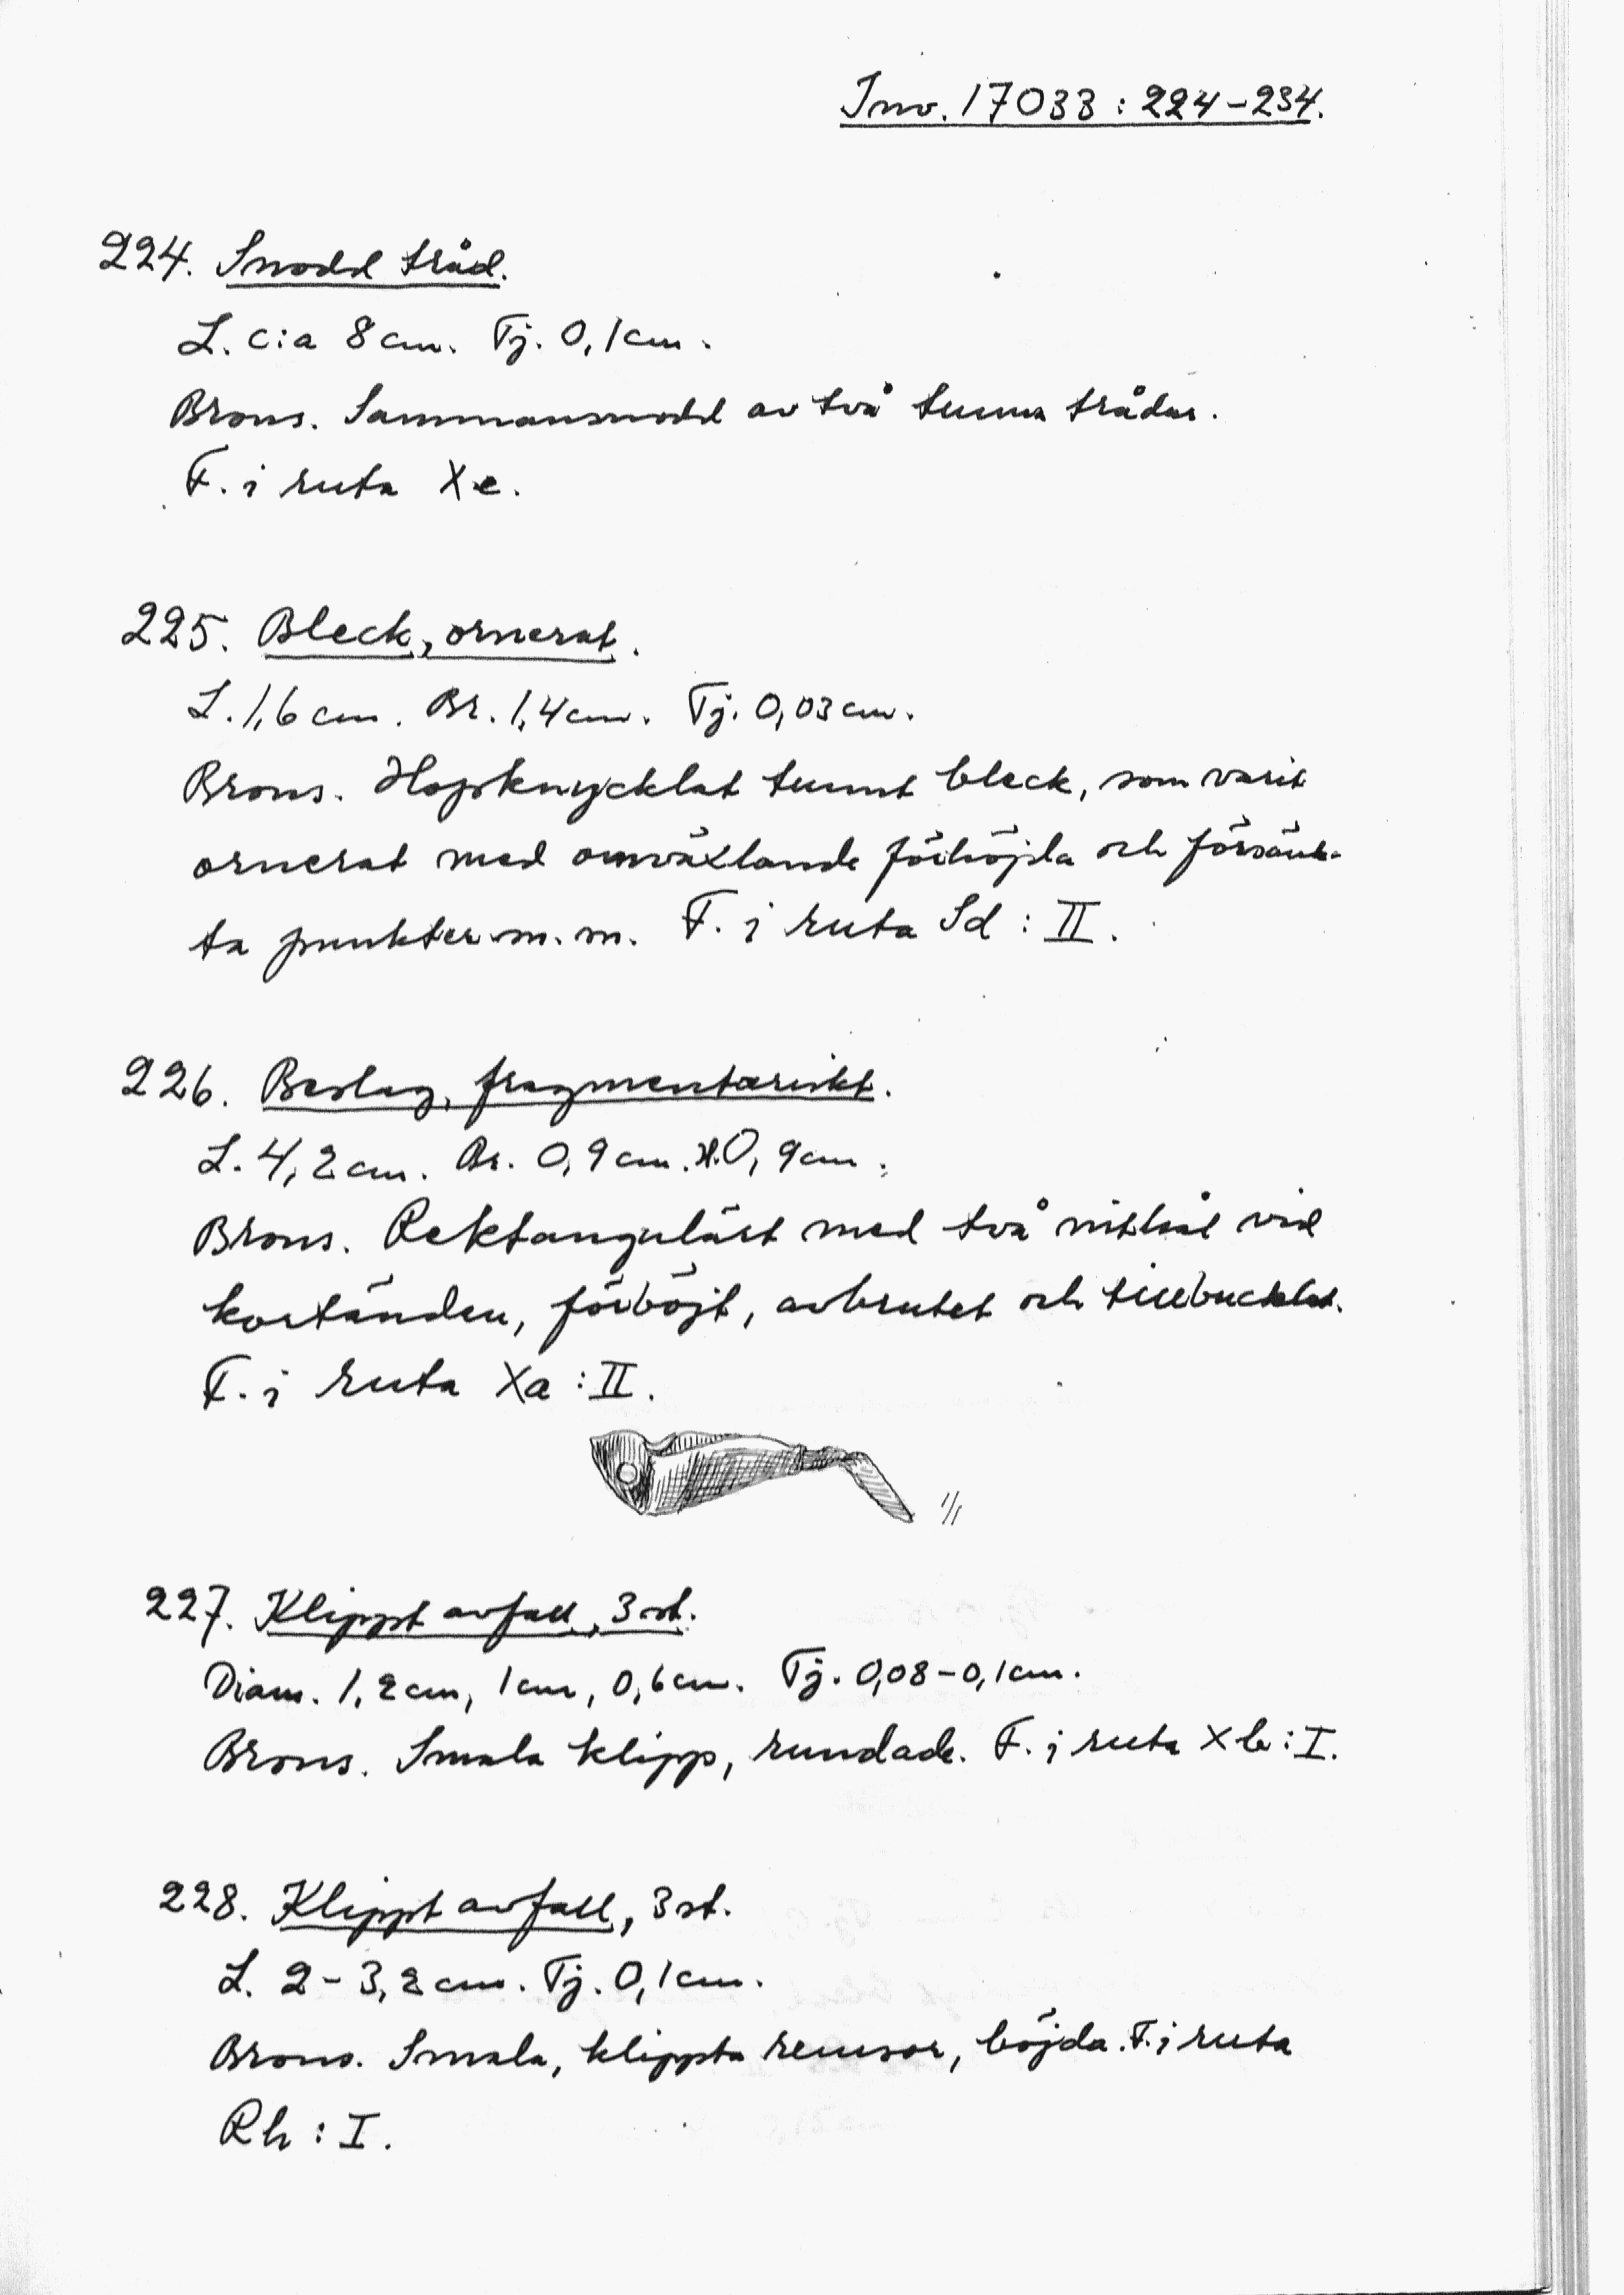 Inv. 17033 : 224-234.
224. Snodd tråd.
L. c:a 8 cm. Tj. 0,1 cm.
Brons. Sammansnodd av två tunna trådar.
F. i ruta Xe.
225. Bleck, ornerat.
L. 1,6 cm. Br. 1,4 cm. Tj. 0,03 cm.
Brons. Hopknycklat tunnt bleck, som varit
ornerat med omväxlande förhöjda och försänk-
ta punkter m.m. F. i ruta Sd : II.
226. Beslag, fragmentariskt.
L. 4,2 cm. Br. 0,9 cm. H. 0,9 cm.
Brons. Rektangulärt med två nithål vid
kortänden, förböjt, avbrutet och tillbucklat.
F. i ruta Xa : II.
1/1
227. Klippt avfall, 3 st.
Diam. 1,2 cm, 1 cm, 0,6 cm. Tj. 0,08-0,1 cm.
Brons. Smala klipp, rundade. F. i ruta Xb : I.
228. Klippt avfall, 3 st.
L. 2-3,2 cm. Tj. 0,1 cm.
Brons. Smala, klippta remsor, böjda. F. i ruta
Rh : I.